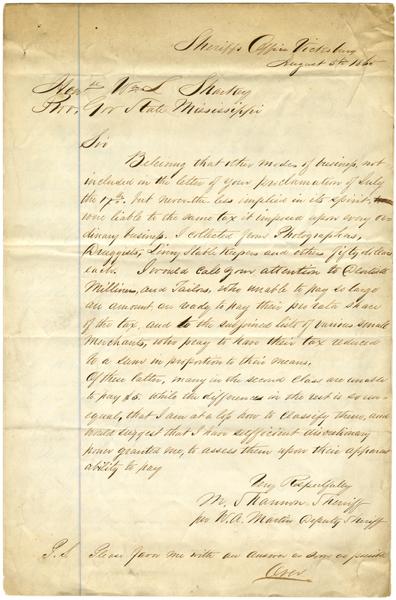 Sheriffs Office Vicksburg
August 5th 1865
Honble Wm L Sharkey
Pro. Gov State Mississippi
Sir
Believing that other modes of business, not
included in the letter of your proclamation of July
the 17th. but never the less implied in its spirit,
were liable to the same tax it imposed upon every or-
dinary business. I collected from Photographers,
Druggists, Livery Stable Keepers and others fifty dollars
each. I would call your attention to
Milliners, and Tailors, who unable to pay so large
an amount are ready to pay their pro rata share
of the tax, and to the subjoined list of various small
Merchants, who pray to have their tax reduced
to a sum in proportion to their means.
Of these latter, many in the second class are unable
to pay $5. while the differences in the rest is so un-
equal, that I am at a loss how to classify them, and
would suggest that I have sufficient discretionary
power granted me, to assess them upon their apparent
ability to pay
Very Respectfully
M. Shannon, Sheriff
per W. A. Martin Deputy Sheriff
P.S. Please favor me with an answer as soon as possible
Over